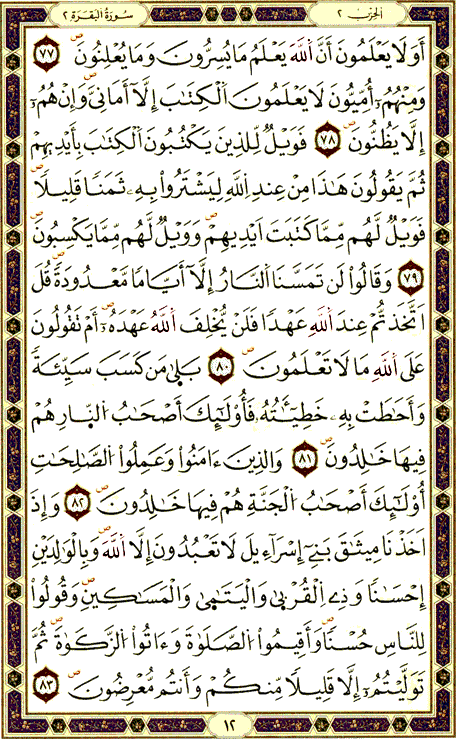 الحِزْب ٢
سُورَةُ البَقَرَة ٢
أَوَلَا يَعْلَمُونَ أَنَّ اَللَّهَ يَعْلَمُ مَا يُسِرُّونَ وَمَا يُعْلِنُونَ ٧٧
وَمِنْهُمُۥٓ أُمِّيُّونَ لَا يَعْلَمُونَ اَلْكِتَٰبَ إِلَّآ أَمَانِىَّ وَإِنْ هُمُۥٓ
إِلَّا يَظُنُّونَ ٧٨ فَوَيْلٌ لِّلذِينَ يَكْتُبُونَ اَلْكِتَٰبَ بِأَيْدِيهِمْ
ثُمَّ يَقُولُونَ هَٰذَا مِنْ عِندِ اِللَّهِ لِيَشْتَرُواْ بِهِۦ ثَمَنًا قَلِيلًا
فَوَيْلٌ لَّهُم مِّمَّا كَتَبَتَ اَيْدِيهِمْ وَوَيْلٌ لَّهُم مِّمَّا يَكْسِبُونَ
٧٩ وَقَالُواْ لَن تَمَسَّنَا اَلنَّارُ إِلَّآ أَيَّامًا مَّعْدُودَةً قُلَ
اَتَّخَذتُّمْ عِندَ اَللَّهِ عَهْدًا فَلَنْ يُّخْلِفَ اَللَّهُ عَهْدَهُۥٓ أَمْ تَقُولُونَ
عَلَى اَللَّهِ مَا لَا تَعْلَمُونَ ٨٠ بَلَىٰ مَن كَسَبَ سَيِّئَةً
وَأَحَٰطَتْ بِهِۦ خَطِيٓـَٰٔتُهُۥ فَأُوْلَٰٓئِكَ أَصْحَٰبُ اُلنّ۪ارِ هُمْ
فِيهَا خَٰلِدُونَ ٨١ وَالذِينَ ءَامَنُواْ وَعَمِلُواْ اُلصَّٰلِحَٰتِ
أُوْلَٰٓئِكَ أَصْحَٰبُ اُلْجَنَّةِ هُمْ فِيهَا خَٰلِدُونَ ٨٢ وَإِذَ
اَخَذْنَا مِيثَٰقَ بَنِےٓ إِسْرَآءِيلَ لَا تَعْبُدُونَ إِلَّا اَللَّهَ وَبِالْوَٰلِدَيْنِ
إِحْسَٰنًا وَذِے اِلْقُرْب۪ىٰ وَالْيَتَٰم۪ىٰ وَالْمَسَٰكِينِ وَقُولُواْ
لِلنَّاسِ حُسْنًا وَأَقِيمُواْ اُلصَّلَوٰةَ وَءَاتُواْ اُلزَّكَوٰةَ ثُمَّ
تَوَلَّيْتُمُۥٓ إِلَّا قَلِيلًا مِّنكُمْ وَأَنتُم مُّعْرِضُونَ ٨٣
١٢